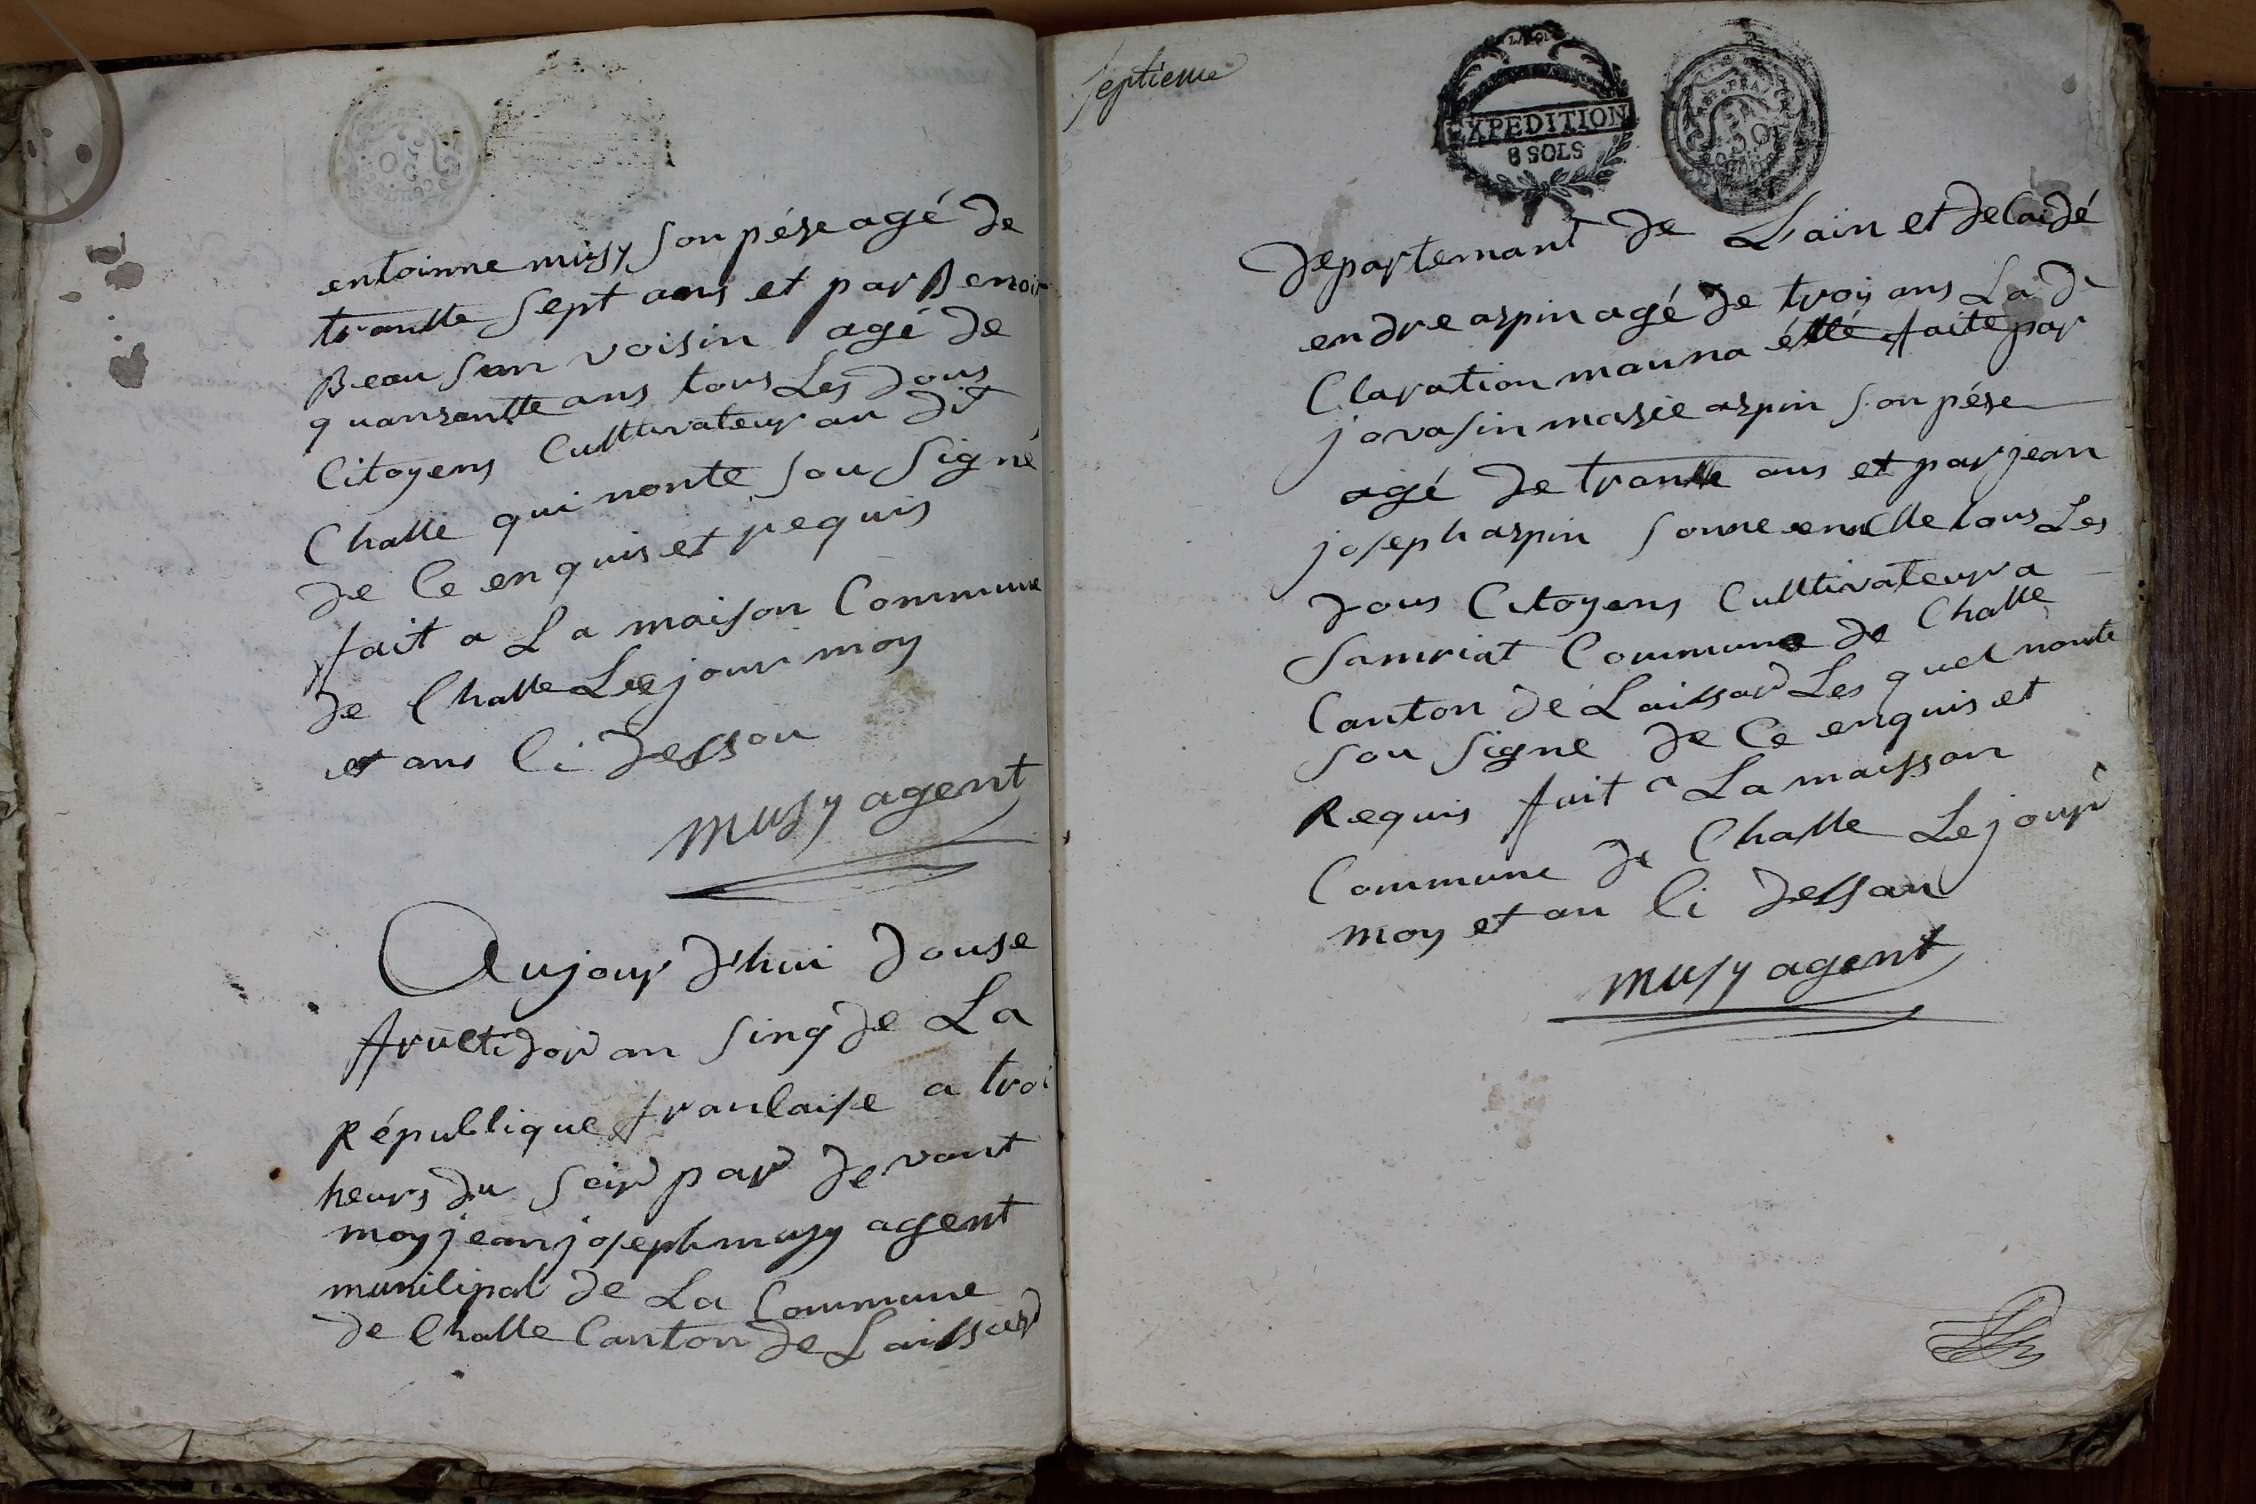 entoinne musy son pére agé de
trantte sept ans et par Benoit
Beau son voisin agé de
quarantte ans tous Les dous
Citoyens Culttivateur au dit
Challe qui nonte sou signé
de Ce enquis et requis
fait a La maison Commune
de Challe Le jour moy
et ans Ci dessou
musy agent
Aujour d'hui douse
fructidor an sinq de La
République francaise a troi
heurs du soir par devant
moy jean joseph musy agent
municipal de La Commune
de Challe Canton de Laissard
septieme
EXPEDITION
8 SOLS
departemant de L'ain et de Cai dé
endre arpin agé de troy ans La dé
Claration mauna étté faitte par
jovasin marie arpin son pére
agé de trantte ans et par jean
joseph arpin tous Les
dous Citoyens Culttivateur a
Samriat Commune de Challe
Canton de Laissard Les quel nonte
sou signé de Ce enquis et
Requis fait a La maisson
Commune de Challe Le jour
moy et an Ci dessou
musy agent